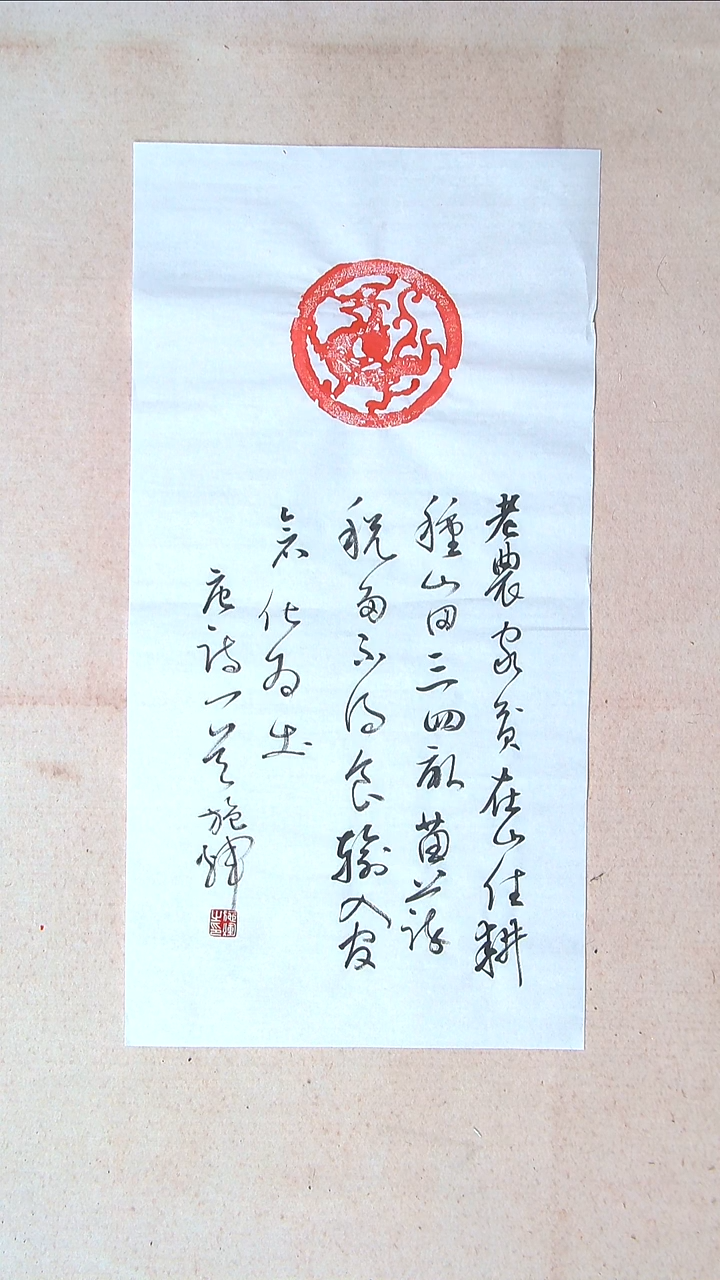 老農家貧在山住耕
種山田三四畝苗疏
税多不得食輸入官
倉化為土
唐詩一首 施